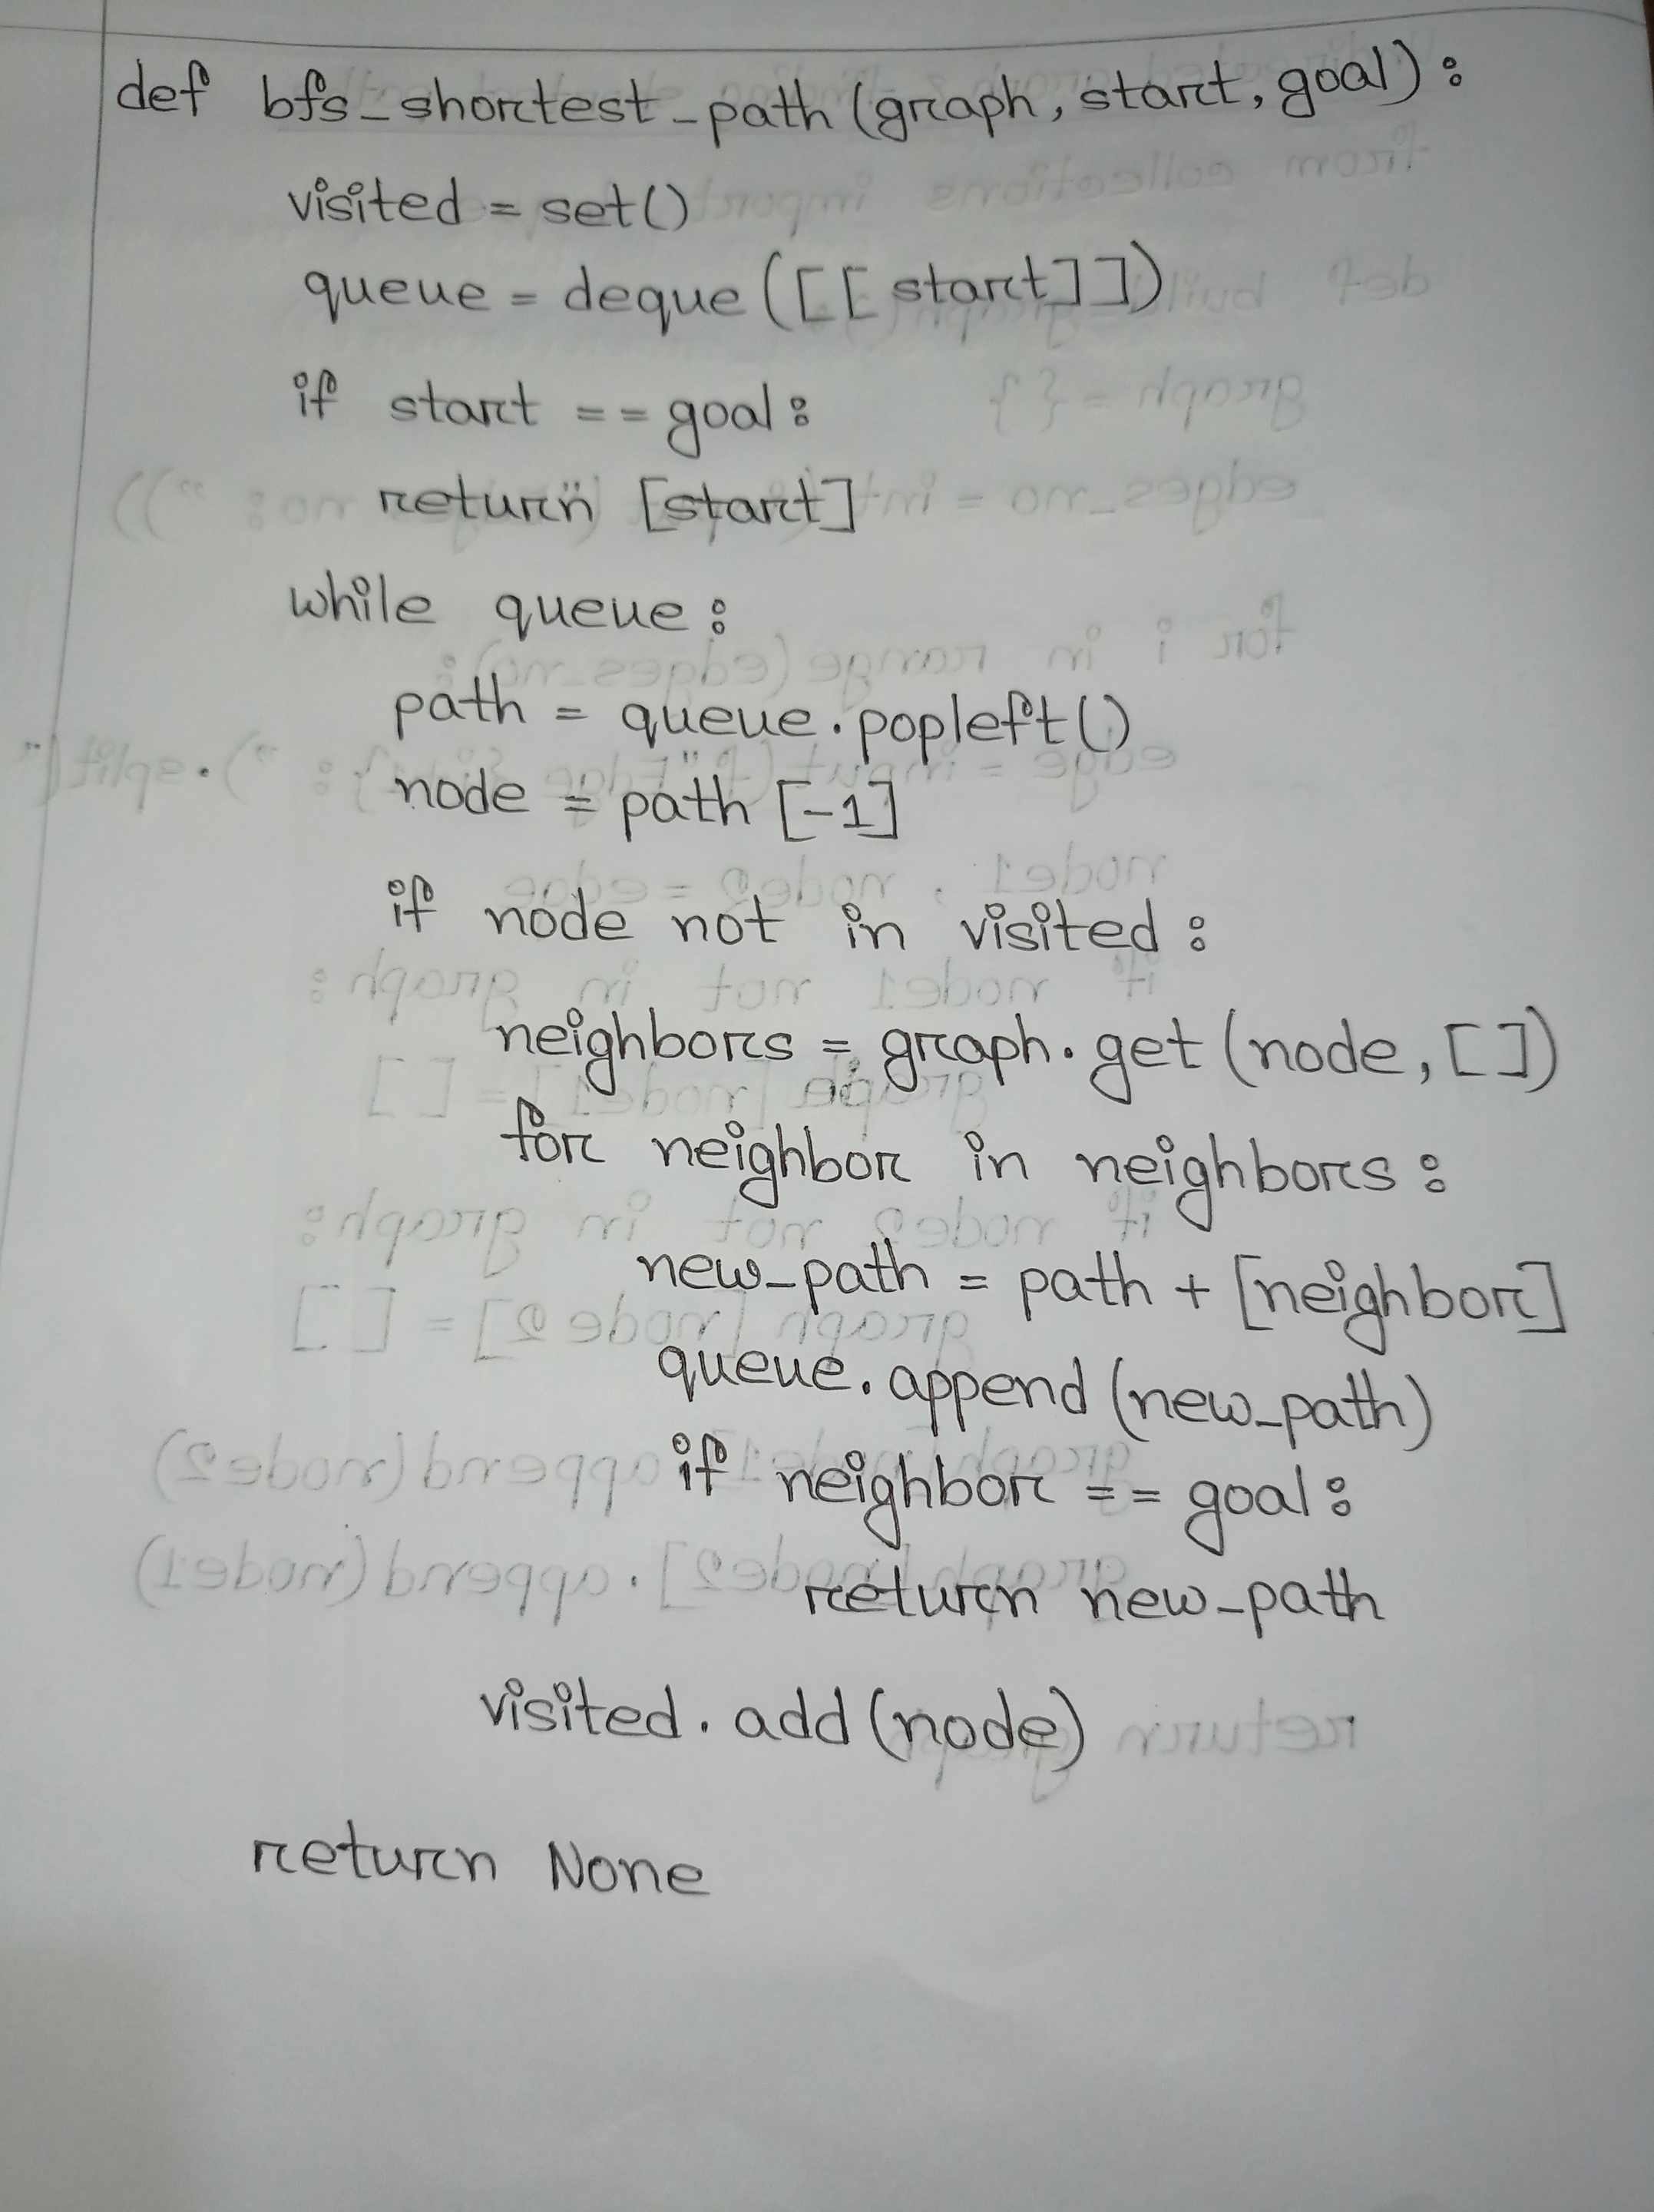 def bfs_shortest_path(graph, start, goal):
visited = set()
queue = deque([[start]])
if start == goal:
return [start]
while queue:
path = queue.popleft()
node = path [-1]
if node not in visited:
neighbors = graph.get(node, [])
for neighbor in neighbors:
new_path = path + [neighbor]
queue.append(new_path)
if neighbor == goal:
return new_path
visited.add(node)
return None